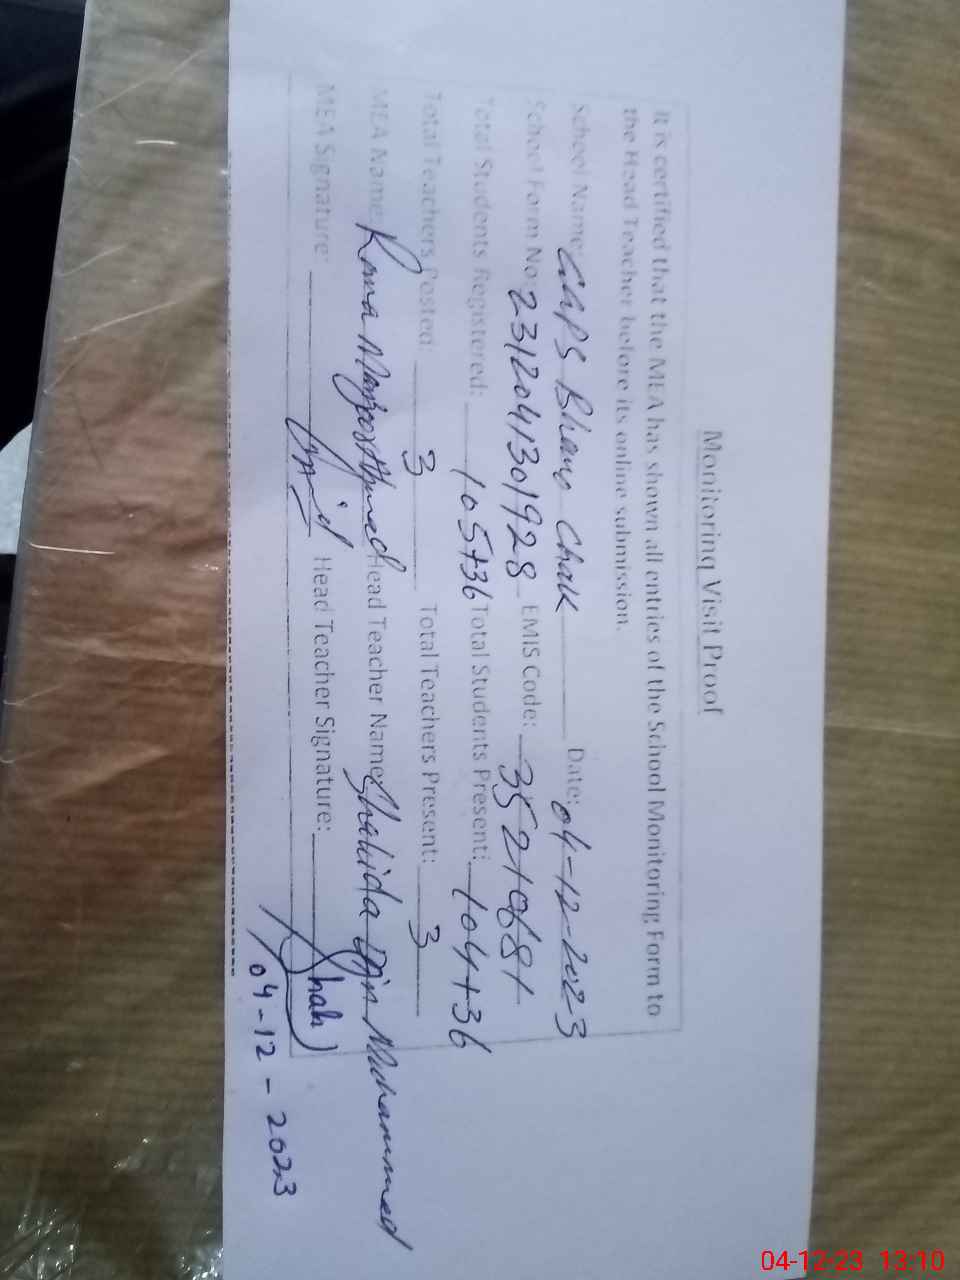 Monitoring Visit Proof
It is certified that the MEA has shown all entries of the School Monitoring Form to
the Head Teacher before its online submission.
School Name: GGPS Bhano Chak Date: 04-12-2023
School Form No: 2312041301928 EMIS Code: 35210681
Total Students Registered: 105+36 Total Students Present: 104+36
Total Teachers Posted: 3 Total Teachers Present: 3
MEA Name: Rana Ahmed Head Teacher Name: Shahida Din Muhammed
MEA Signature: Head Teacher Signature: Shah
04-12-2023
04-12-23 13:10